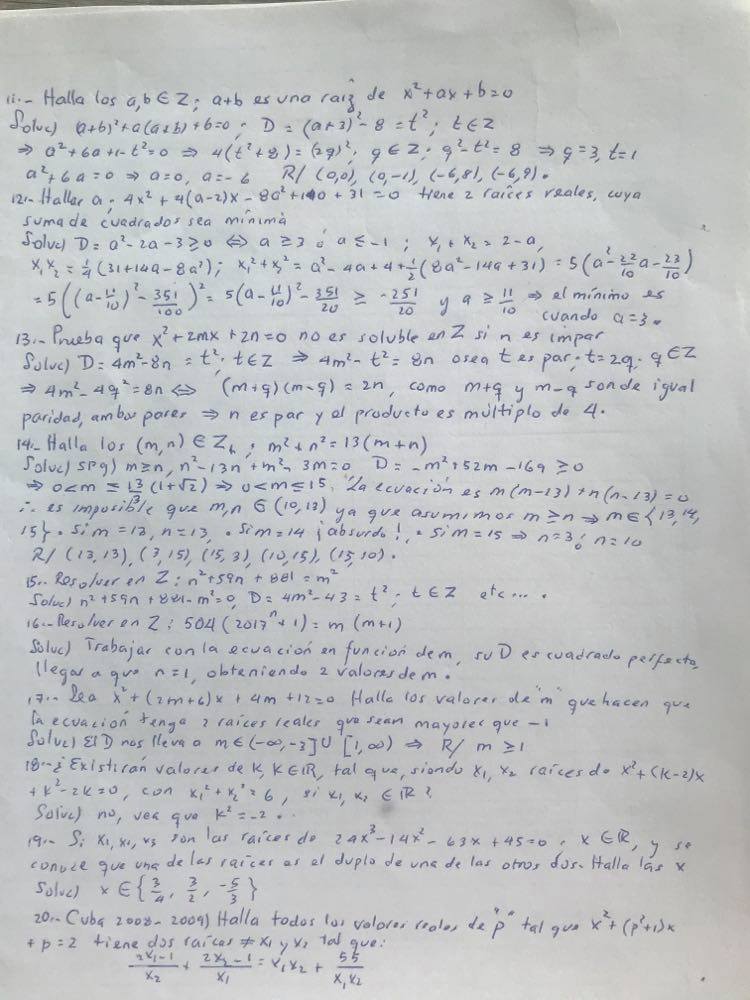 11.- Halla los a,b ∈ Z; a+b es una raíz de x²+ax+b=0
Soluc) (a+b)²+a(a+b)+b=0; D = (a+3)²-8 = t²; t∈Z
⇒ a²+6a+1-t²=0 ⇒ 4(t²+8)=(2q)²; q∈Z; q²-t²=8 ⇒ q=3, t=1
a²+6a=0 ⇒ a=0, a=-6 R/ (0,0), (0,-1), (-6,8), (-6,9).
12.- Hallar a; 4x²+4(a-2)x-8a²+14a+31=0 tiene 2 raíces reales, cuya
suma de cuadrados sea mínima
Soluc) D = a²-2a-3 ≥ 0 ⇔ a ≥ 3 ó a ≤ -1; x₁+x₂ = 2-a,
x₁x₂ = 1/4 (31+14a-8a²); x₁²+x₂² = a²-4a+4+1/2(8a²-14a+31) = 5(a²-22/10 a-23/10)
= 5((a-11/10)²-351/100)² = 5(a-11/10)²-351/20 ≥ -251/20 y a ≥ 11/10 ⇒ el mínimo es
cuando a=3.
13.- Prueba que x²+2mx+2n=0 no es soluble en Z si n es impar
Soluc) D = 4m²-8n = t²; t∈Z ⇒ 4m²-t²=8n osea t es par; t=2q; q∈Z
⇒ 4m²-4q²=8n ⇔ (m+q)(m-q) = 2n, como m+q y m-q son de igual
paridad, ambos pares ⇒ n es par y el producto es múltiplo de 4.
14.- Halla los (m,n) ∈ Z₊; m²+n²=13(m+n)
Soluc) spg) m≥n, n²-13n+m²-13m=0 D = -m²+52m-169 ≥ 0
⇒ 0<m≤13/2(1+√2) ⇒ 0<m≤15. La ecuación es m(m-13)+n(n-13)=0
∴ es imposible que m,n ∈ (10,13) ya que asumimos m≥n ⇒ m∈{13,14,
15}. Si m=13, n=13, . Si m=14 ¡absurdo!, . Si m=15 ⇒ n=3 ó n=10
R/ (13,13), (3,15), (15,3), (10,15), (15,10).
15.- Resolver en Z: n²+59n+881=m²
Soluc) n²+59n+881-m²=0, D=4m²-43=t²; t∈Z etc....
16.- Resolver en Z: 504(2017ⁿ+1)=m(m+1)
Soluc) Trabajar con la ecuación en función de m, su D es cuadrado perfecto,
llegar a que n=1, obteniendo 2 valores de m.
17.- Sea x²+(2m+6)x+4m+12=0 Halla los valores de "m" que hacen que
la ecuación tenga 2 raíces reales que sean mayores que -1
Soluc) El D nos lleva a m∈(-∞,-3]∪[1,∞) ⇒ R/ m≥1
18.- ¿Existirán valores de k, k∈ℝ, tal que, siendo x₁, x₂ raíces de x²+(k-2)x
+k²-2k=0, con x₁²+x₂²=6, si x₁,x₂ ∈ℝ?
Soluc) no, vea que k²=-2.
19.- Si x₁,x₂,x₃ son las raíces de 24x³-14x²-63x+45=0; x∈ℝ, y se
conoce que una de las raíces es el duplo de una de las otros dos. Halla las x
Soluc) x∈{3/4, 3/2, -5/3}
20.- Cuba 2008-2009) Halla todos los valores reales de "p" tal que x²+(p²+1)x
+p=2 tiene dos raíces ≠ x₁ y x₂ tal que:
(2x₁-1)/x₂ + (2x₂-1)/x₁ = x₁x₂ + 55/(x₁x₂)